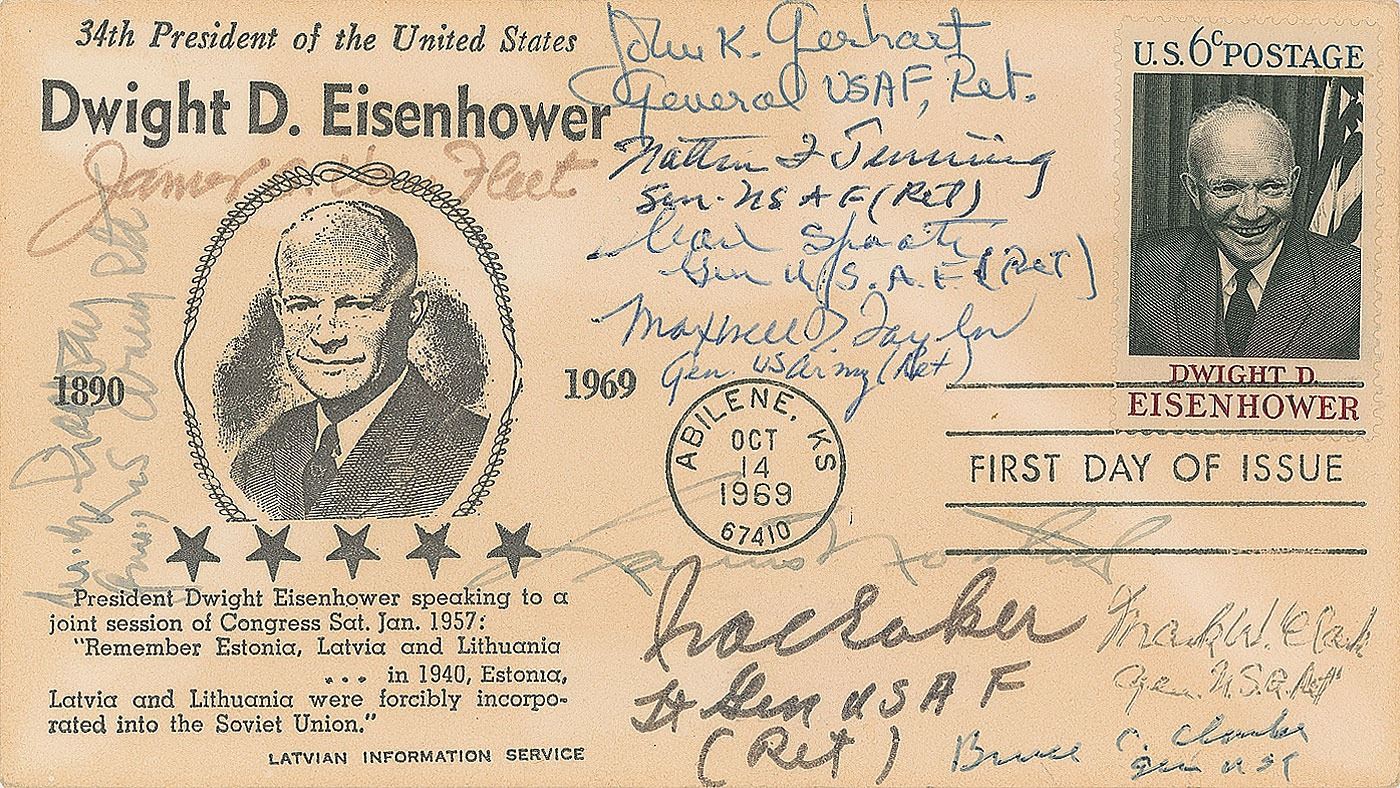 34th President of the United States
Dwight D. Eisenhower
1890
1969
President Dwight Eisenhower speaking to a
joint session of Congress Sat. Jan. 1957:
"Remember Estonia, Latvia and Lithuania
... in 1940, Estonia,
Latvia and Lithuania were forcibly incorpo-
rated into the Soviet Union."
LATVIAN INFORMATION SERVICE
John K. Gerhart
General USAF, Ret.
Nathan F Twining
Gen. USAF (Ret)
Carl Spaatz
Gen U.S.A.F. (Ret)
Maxwell D Taylor
Gen. US Army (Ret)
James A. Van Fleet
U.S. 6c POSTAGE
DWIGHT D.
EISENHOWER
ABILENE, KS
OCT
14
1969
67410
FIRST DAY OF ISSUE
Lauris Norstad
Ira C Eaker
Lt Gen USAF
(Ret)
Bruce C. Clarke
Gen USA